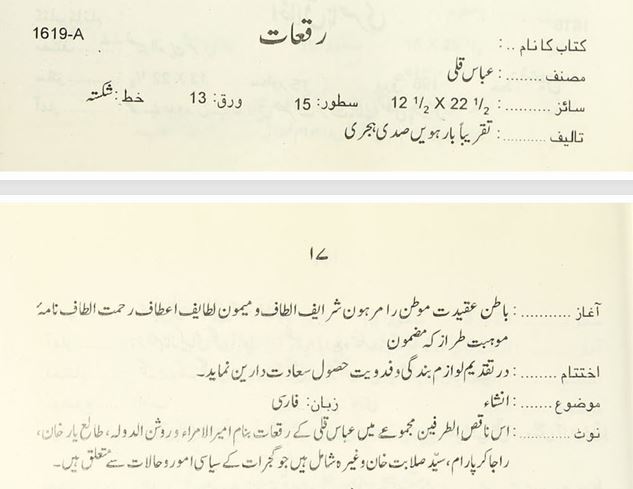 کتاب کا نام ..: رقعات 1619-A
مصنف ..........: عباس قلی
سائز ..........: 12 1/2 X 22 1/2 سطور: 15 ورق: 13 خط: شکستہ
تالیف ..........: تقریباً بارہویں صدی ہجری
۱۷
آغاز ..........: باطن عقیدت موطن را مرہون شرایف الطاف و میمون لطایف اعطاف رحمت الطاف نامۂ
موہبت طراز کہ مضمون
اختتام ........: در تقدیم لوازم بندگی و فدویت حصول سعادت دارین نماید۔
موضوع .......: انشاء زبان: فارسی
نوٹ ..........: اس ناقص الطرفین مجموعے میں عباس قلی کے رقعات بنام امیر الامراء و روشن الدولہ، طالع یار خان،
راجا کرپا رام، سیّد صلابت خان وغیرہ شامل ہیں جو گجرات کے سیاسی امور و حالات سے متعلق ہیں۔